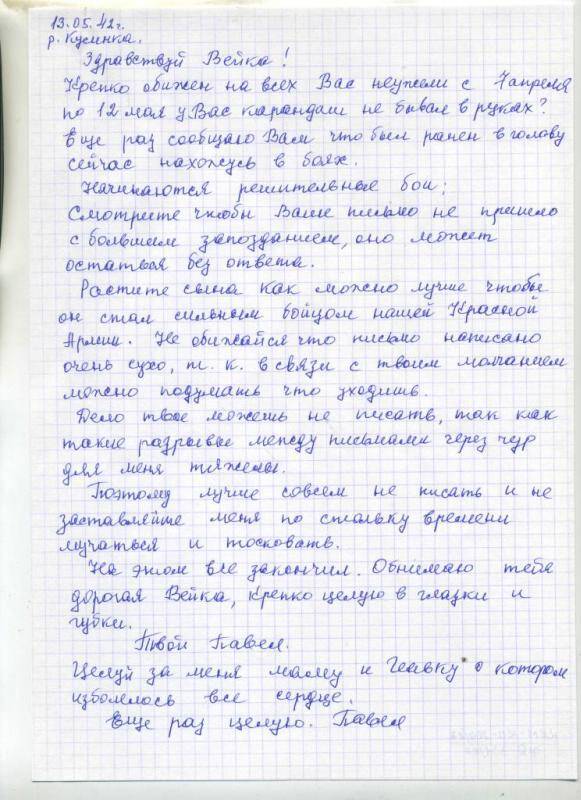 13.05.42г.
р. Кусинка.
Здравствуй Вейка!
Крепко обижен на всех Вас неужели с 7 апреля
по 12 мая у Вас карандаш не бывал в руках?
Еще раз сообщаю Вам что был ранен в голову
сейчас нахожусь в боях.
Начинаются решительные бои;
Смотрите чтобы Ваше письмо не пришло
с большим запозданием, оно может
остаться без ответа.
Растите сына как можно лучше чтобы
он стал сильным бойцом нашей Красной
Армии. Не обижайся что письмо написано
очень сухо, т. к. в связи с твоим молчанием
можно подумать что уходишь.
Дело твое можешь не писать, так как
такие разрывы между письмами через чур
для меня тяжелы.
Поэтому лучше совсем не писать и не
заставляйте меня по стольку времени
мучаться и тосковать.
На этом все закончил. Обнимаю тебя
дорогая Вейка, крепко целую в глазки и
губки.
Твой Павел.
Целуй за меня маму и о котором
изболелось все сердце.
Еще раз целую. Павел